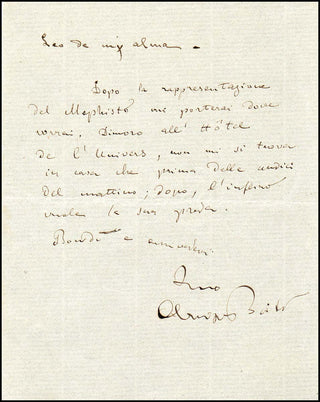 Leo de mi alma -
Dopo la rappresentazione
del Mephisto mi porterai dove
vorrai. Dimoro all' Hôtel
de l'Univers, non mi si trova
in casa che prima delle undici
del mattino; dopo, l'inferno
vuole la sua preda.
e
Tuo
Arrigo Boito